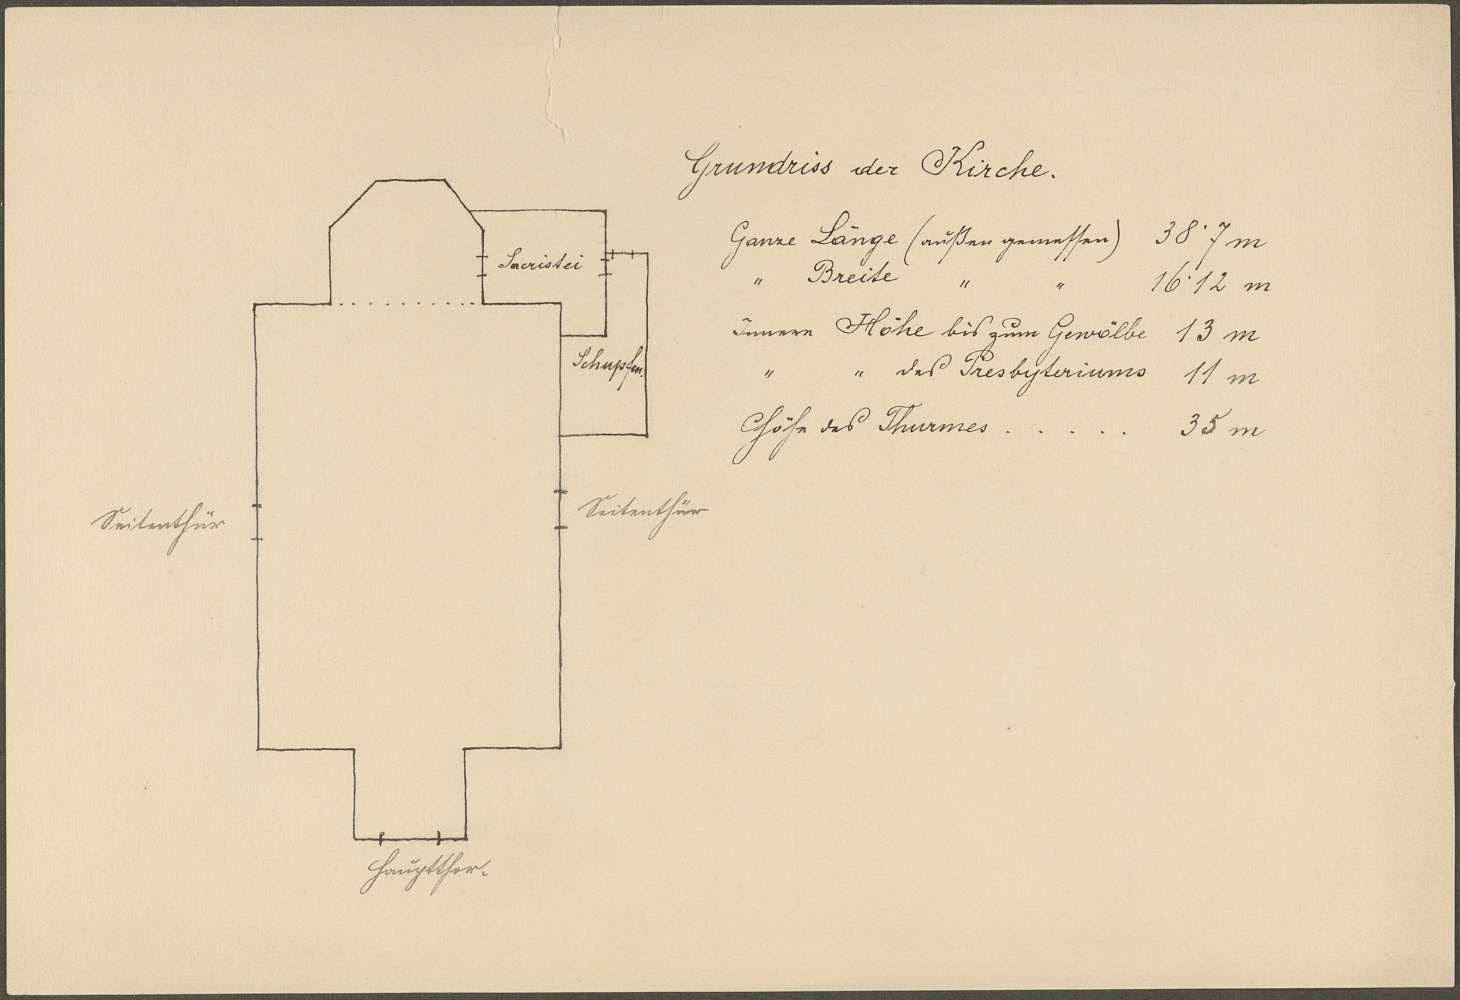 Grundriss der Kirche.
Ganze Länge (außen gemessen) 38·7 m
" Breite " " 16·12 m
Innere Höhe bis zum Gewölbe 13 m
" " des Presbyteriums 11 m
Höhe des Thurmes . . . . . 35 m
Sacristei
Schupfen.
Seitenthür
Seitenthür
Hauptthor.